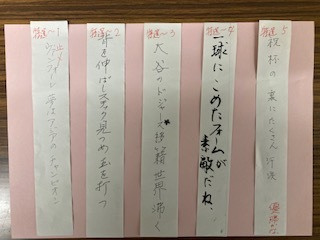 特選-1
夢は今年のチャンピオン
特選-2
背を伸ばし見つめ玉を打つ
特選-3
大谷のドジャース移籍世界沸く
特選-4
一球にこめたフォームが
素敵だね、
特選 5
祝杯の裏にたくさん